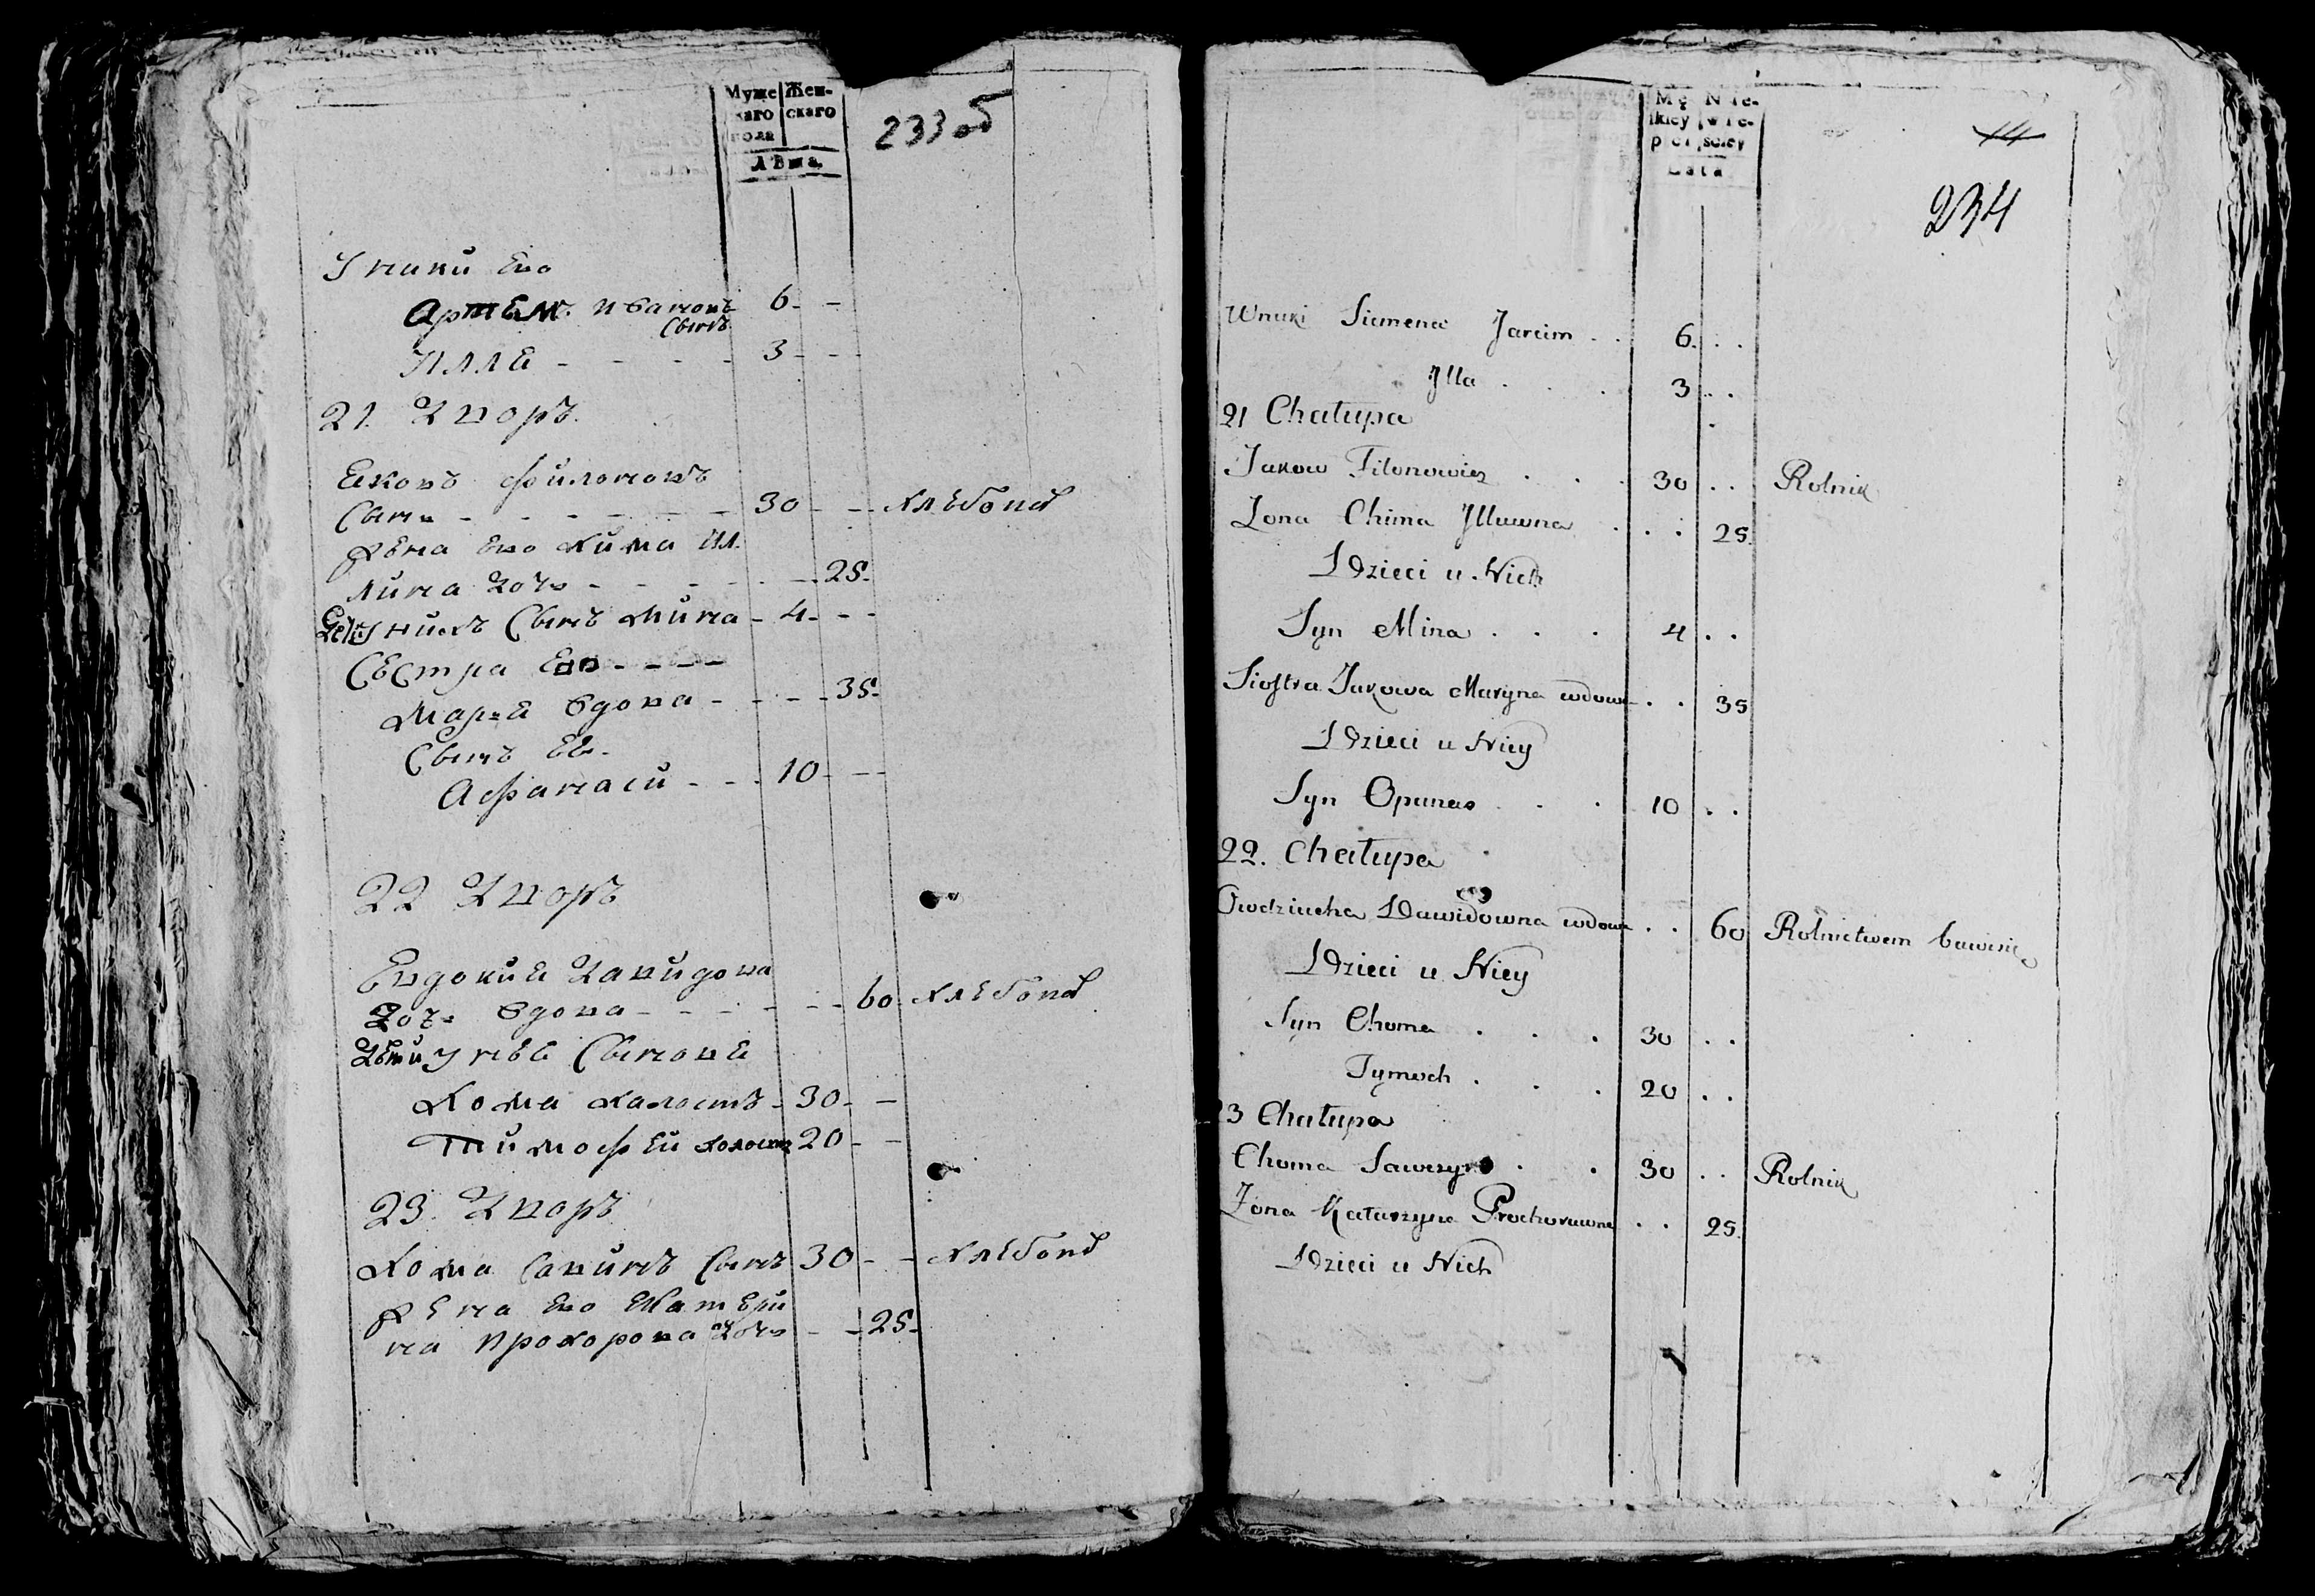 Муже Жен-
каго скаго
пола
Лѣта.
233 об
Унуки Ево
Артемъ Ивановъ
Сынъ 6 - -
Илля - - - - 3 - - -
21. Дворъ.
Яковъ Филоновъ
Сынъ - - - - - - 30 - - Хлебопа
Жена Ево Хима Ил
лина Дочь - - - - - - 25
Сынъ Мина - 4 - - -
Сестра Ево - - - -
Маря вдова - - - - 35
Сынъ Ее -
Афанаси - - - 10 - - -
22 Дворъ
Евдокия Давидова
Дочь вдова - - - - - - 60 Хлебопа
Дети у нее Сыновя
Хома халостъ - 30 - -
Тимофеи холостъ 20 - -
23. Дворъ
Хома Савинъ Сынъ 30 - - Хлебопа
Жена Ево Екатери
на Прохорова Дочь - - 25
Mę Nie-
skiey wie-
płci sciey
Lata
14
234
Wnuki Siemena Jarcim . . 6. . .
Jlla . . . 3 . .
21 Chałupa
Jakow Filonowicz . . . 30 . . Rolnik
Żona Chima Jllowna . . . 25.
Dzieci u Nich
Syn Mina . . . 4 . .
Siostra Jakowa Maryna wdowa . . 35
Dzieci u Niey
Syn Opanas . . . 10 . .
22. Chałupa
Owdziucha Dawidowna wdowa . . 60 Rolnictwem bawi się
Dzieci u Niey
Syn Choma . . . 30 . .
Tymoch . . . 20 . .
23 Chałupa
Choma Sawczyn . . 30 . . Rolnik
Żona Katarzyna Prochorowna . . 25.
Dzieci u Nich